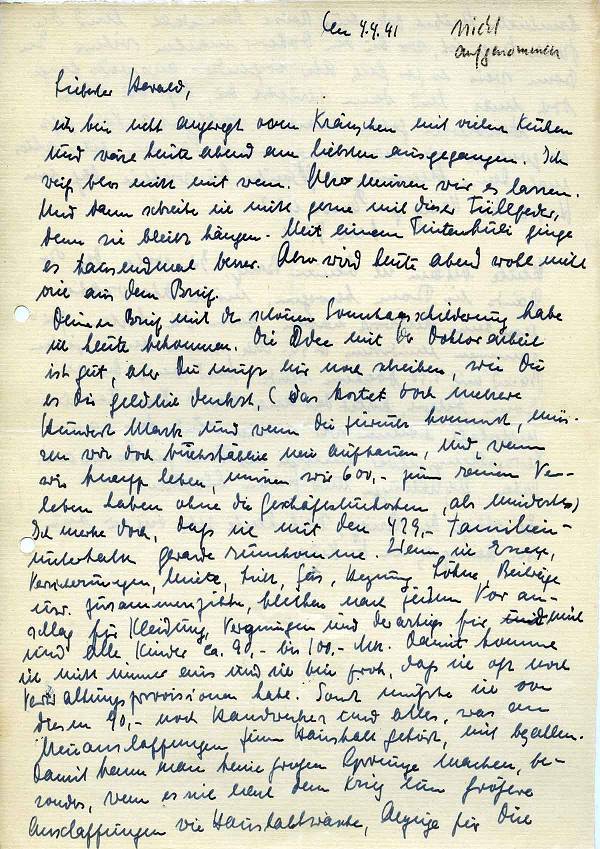 den 4.4.41
nicht
aufgenommen
Liebster Harald,
ich bin recht angeregt vom Kränzchen mit vielen Kuchen
und wäre heute abend am liebsten ausgegangen. Ich
weiß blos nicht mit wem. Also müssen wir es lassen.
Und dann schreibe ich nicht gerne mit dieser Füllfeder,
denn sie bleibt hängen. Mit einem Tintenkuli ginge
es tausendmal besser. Also wird heute abend wohl nicht
viel aus dem Brief.
Deinen Brief mit der schönen Sonntagsschilderung habe
ich heute bekommen. Die Idee mit der Doktorarbeit
ist gut, aber Du mußt mir noch schreiben, wie Du
es Dir geldlich denkst, (das kostet doch mehrere
Hundert Mark und wenn Du zurück kommst, müs-
sen wir doch buchstäblich neu aufbauen, und, wenn
wir knapp leben, müssen wir 600,- zum reinen Ver-
leben haben ohne die Geschäftsunkosten, als mindestes)
Ich merke doch, daß ich mit den 429,- Familien-
unterhalt gerade rumkomme. Wenn ich Essen,
Versicherungen, Miete, Licht, Gas, Heizung, Löhne, Beiträge
usw. zusammenzähle, bleiben nach jedem Vor an-
schlag für Kleidung, Vergnügen und derartiges für mich
und alle Kinder ca. 90.- bis 100,- Mk. Damit komme
ich nicht immer aus und ich bin froh, daß ich oft noch
Verwaltungsprovisionen habe. Sonst müßte ich von
diesen 90,- noch Handwerker und alles, was an
Neuanschaffungen zum Haushalt gehört, mit bezahlen.
Damit kann man keine großen Sprünge machen, be-
sonders, wenn es nach dem Krieg um größere
Anschaffungen wie Haushaltswäsche, Anzüge für Dich